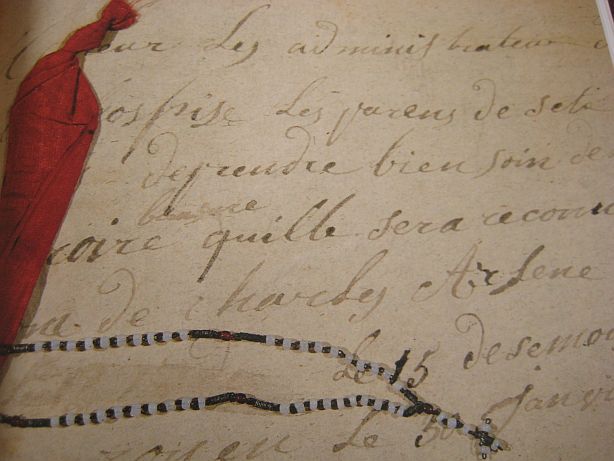 les administrateur
ospise les parens de set
deprendre bien soin de
bonne
roire quille sera reconu
de charles Arsene
Le 15 desemo
janvi
Le 30